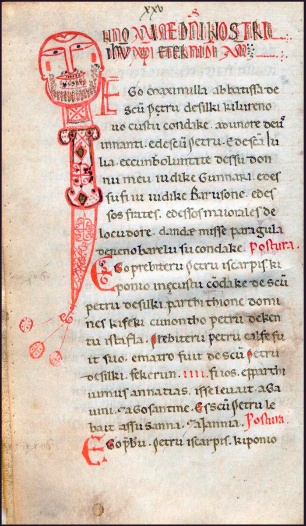 xxv
IN NOMINE DNI NOSTRI
IHU XPI ETERNI DI AM
EGo maximilla abbatissa de
scu petru de silki ki lu reno
uo custu condake. adunore deu
innanti. edescu petru. edescã Iu
lia. ecum boluntate dessu don
nu meu iudike Gunnari. edes
su fiiu iudike Barusone. edes
sos frates. edessos maiorales de
locudore. dandem isse paragula
derenobarelu su condake. Postura.
Ego prebiteru petru iscarpis ki
ponio in custu cõdake de scu
petru desilki parthithione domi
nes ki feki cun ontho petru de ken
tu istafla. Prebiteru petru calfe fu
it suo. ematro fuit de scu petru
desilki. fekerun .IIII. fiios. eparthi
uimus annatias. isse leuait. aGa
uini. & aGosantine. Escu petru le
bait assusanna. & aIannia. Postura.
Ego pbru. petru iscarpis. ki ponio